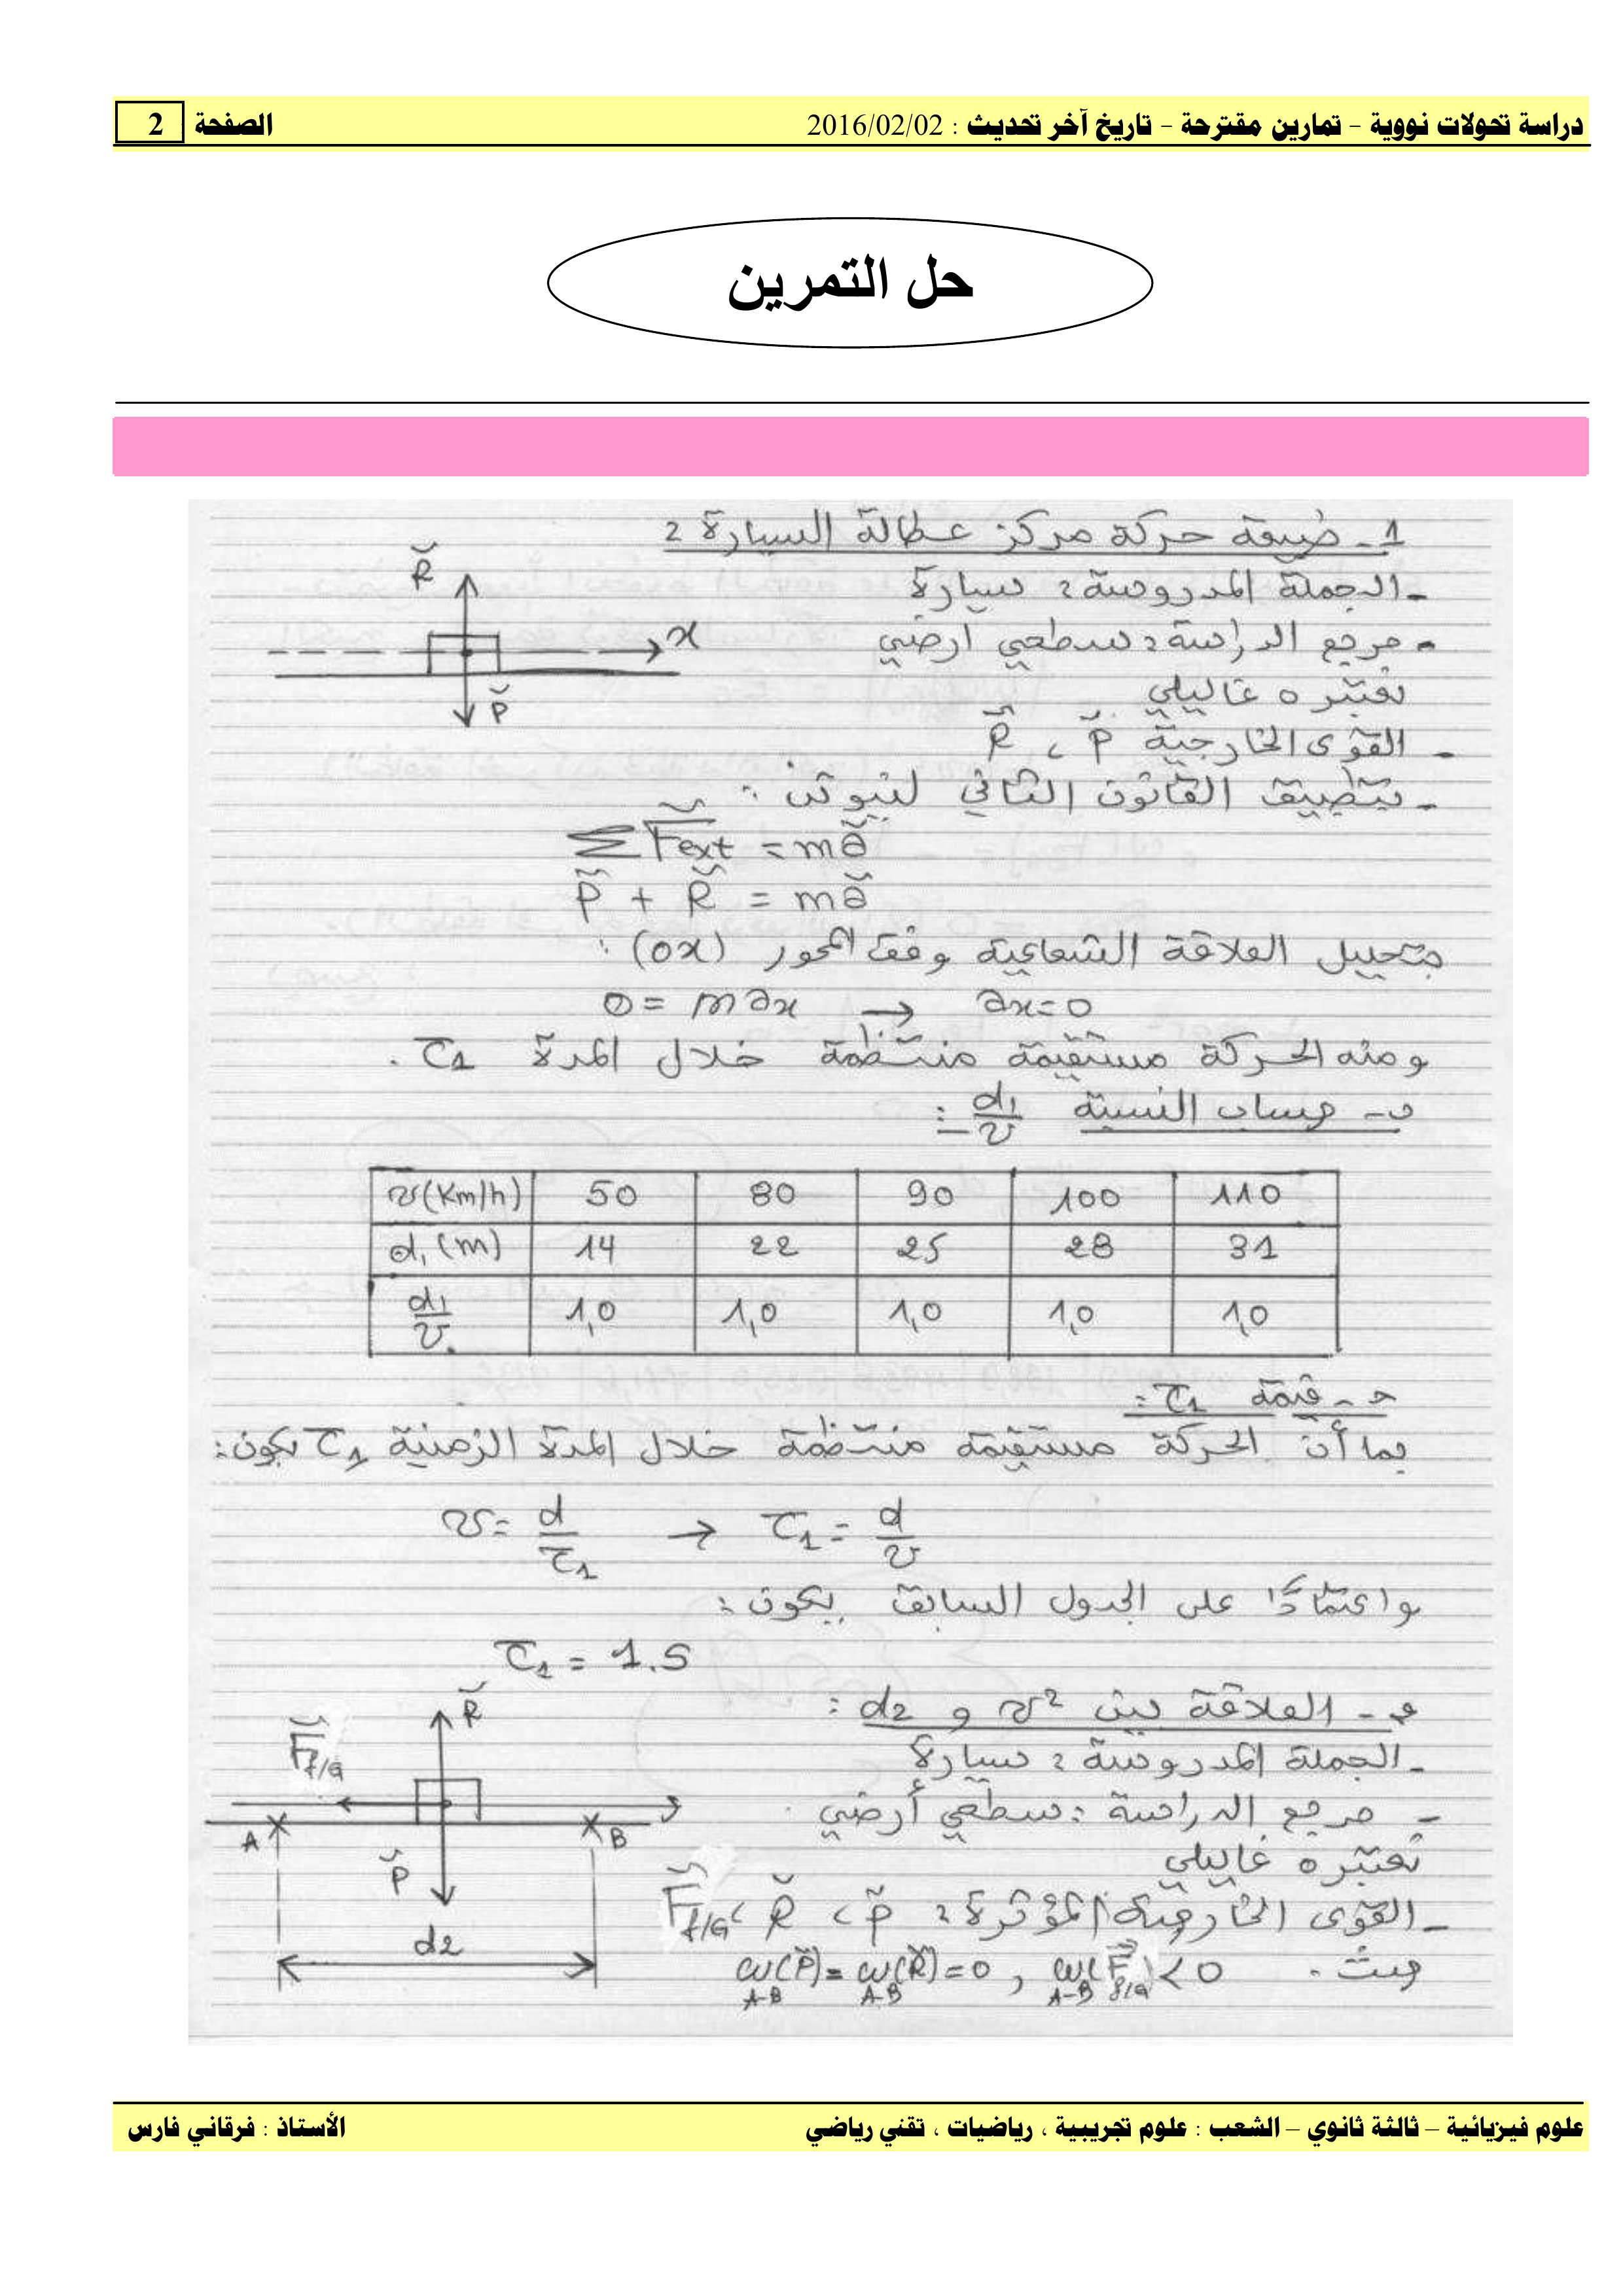 دراسة تحولات نووية – تمارين مقترحة – تاريخ آخر تحديث : 2016/02/02 الصفحة 2
حل التمرين
1- طبيعة حركة مركز عطالة السيارة :
- الجملة المدروسة : سيارة
R
- مرجع الدراسة : سطحي ارضي
x
نعتبره غاليلي
P
- القوى الخارجية P ، R
- بتطبيق القانون الثاني لنيوتن :
∑ Fext = ma
P + R = ma
بتحليل العلاقة الشعاعية وفق المحور (ox) :
0 = m ax → ax = 0
ومنه الحركة مستقيمة منتظمة خلال المدة τ1 .
ب- حساب النسبة d1/v :
v(Km/h) 50 80 90 100 110
d1 (m) 14 22 25 28 31
d1/v 1,0 1,0 1,0 1,0 1,0
ح - قيمة τ1 :
بما أن الحركة مستقيمة منتظمة خلال المدة الزمنية τ1 يكون :
v = d/τ1 → τ1 = d/v
واعتمادًا على الجدول السابق يكون :
τ1 = 1.s
- العلاقة بين v² و d2 :
R
- الجملة المدروسة : سيارة
F f/G
- مرجع الدراسة : سطحي أرضي
A B
نعتبره غاليلي
P
- القوى الخارجية المؤثرة : P ، R ، F f/G
d2
حيث . w(P) A-B = w(R) A-B = 0 , w(F f/G) A-B < 0
علوم فيزيائية – ثالثة ثانوي – الشعب : علوم تجريبية ، رياضيات ، تقني رياضي الأستاذ : فرقاني فارس